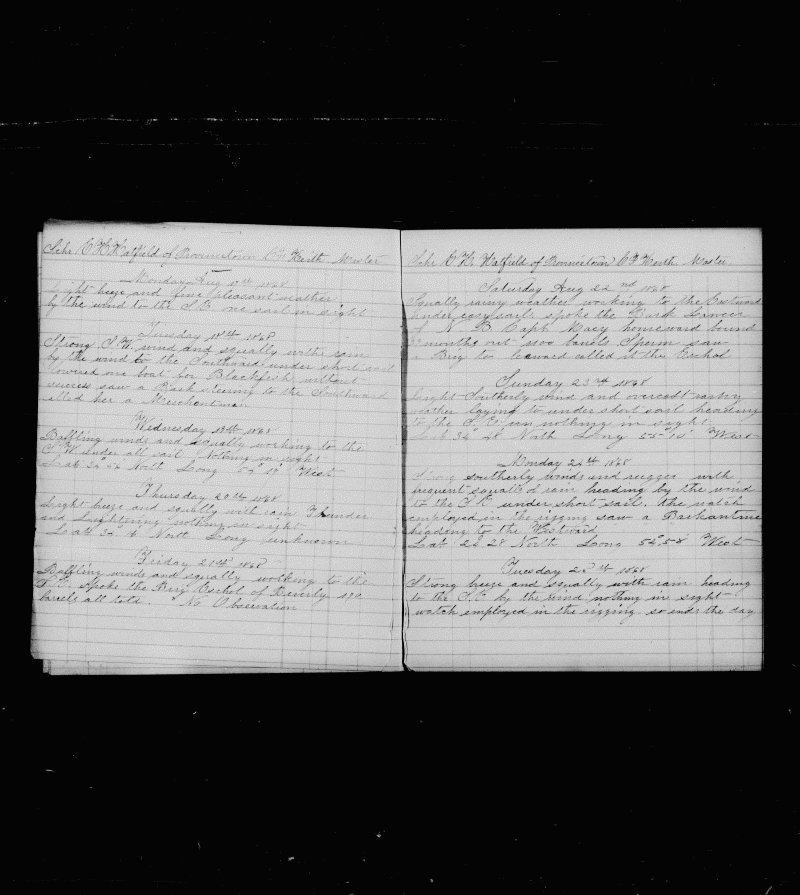 Schr C H Hatfield of Provincetown C F Keith Master
Monday Aug 17th 1868
Light breeze and fine pleasant weather
by the wind to the S.E. one sail in sight
Tuesday 18th 1868
Strong S.W. wind and squally with rain
by the wind to the Southward under short sail
lowered one boat for Blackfish without
success saw a Bark steering to the Southward
called her a Merchantman
Wednesday 19th 1868
Baffling winds and squally working to the
under all sail Nothing in sight
Lat North Long West
Thursday 20th 1868
Light breeze and squally with rain Thunder
and Lightening nothing in sight
Lat North Long unknown
Friday 21st 1868
Baffling winds and squally working to the
spoke the Brig Eschol of Beverly
barels all told. No Observation
Schr C H Hatfield of Provincetown C F Keith Master
Saturday Aug 22nd 1868
Squally rainy weather working to the Eastward
under easy sail. spoke the Bark Lancer
of N. B. Capt Macy homeward bound
months out barels Sperm saw
a Brig to leeward called it the Eschol
Sunday 23rd 1868
Light Southerly wind and overcast rainy
weather laying to under short sail heading
to the nothing in sight
Lat 34 28 North Long West
Monday 24th 1868
Strong southerly winds and rugged with
frequent squalls of rain heading by the wind
to the under short sail. the watch
employed in the rigging saw a Brikantine
heading to the Westward
Lat 28 North Long West
Tuesday 25th 1868
Strong breeze and squally with rain heading
to the S.E by the wind nothing in sight
watch employed in the rigging so ends the day